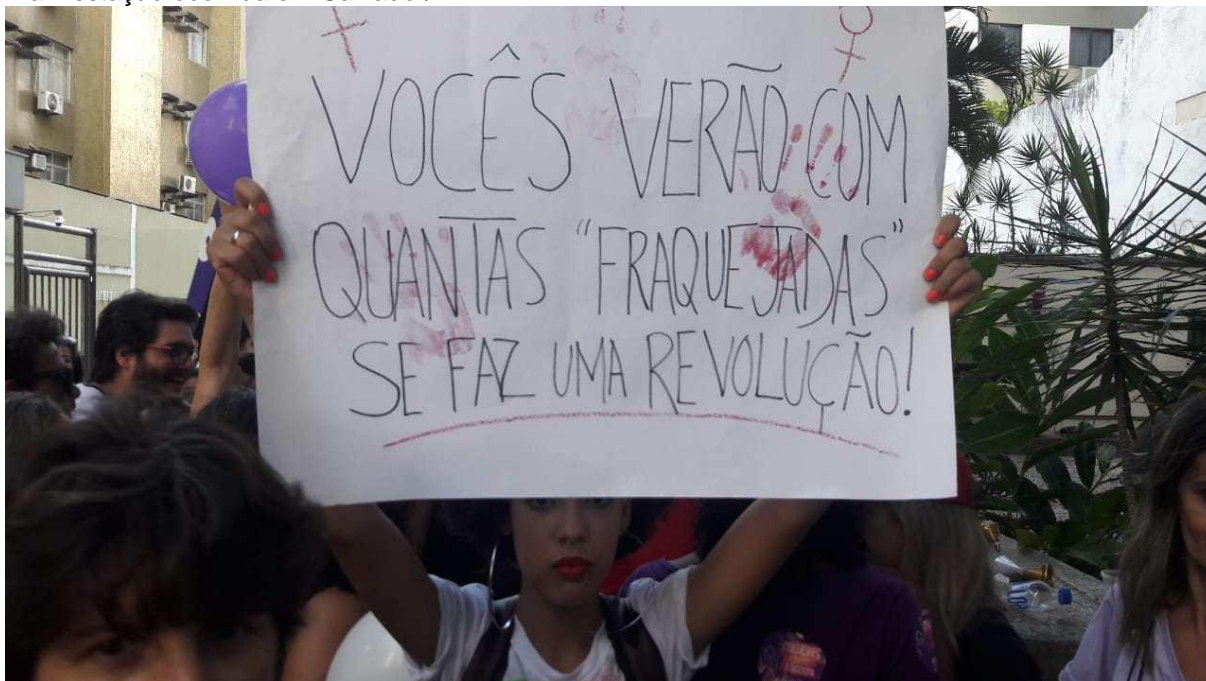 VOCÊS VERÃO COM
QUANTAS "FRAQUEJADAS"
SE FAZ UMA REVOLUÇÃO!